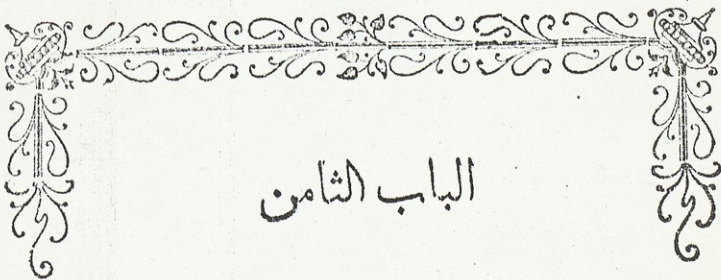 الباب الثامن